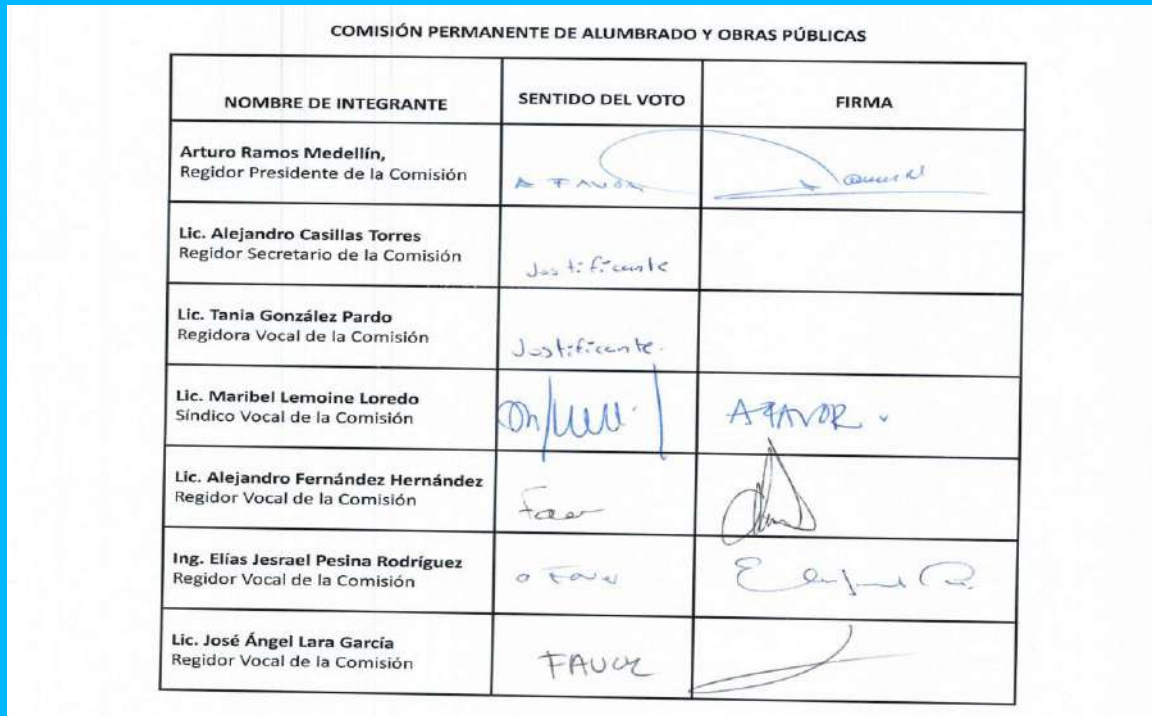 COMISIÓN PERMANENTE DE ALUMBRADO Y OBRAS PÚBLICAS
NOMBRE DE INTEGRANTE SENTIDO DEL VOTO FIRMA
Arturo Ramos Medellín,
Regidor Presidente de la Comisión
A FAVOR
Lic. Alejandro Casillas Torres
Regidor Secretario de la Comisión
Justificante
Lic. Tania González Pardo
Regidora Vocal de la Comisión
Justificante.
Lic. Maribel Lemoine Loredo
Síndico Vocal de la Comisión
A FAVOR
Lic. Alejandro Fernández Hernández
Regidor Vocal de la Comisión
Ing. Elías Jesrael Pesina Rodríguez
Regidor Vocal de la Comisión
a Favor
Lic. José Ángel Lara García
Regidor Vocal de la Comisión
FAVOR